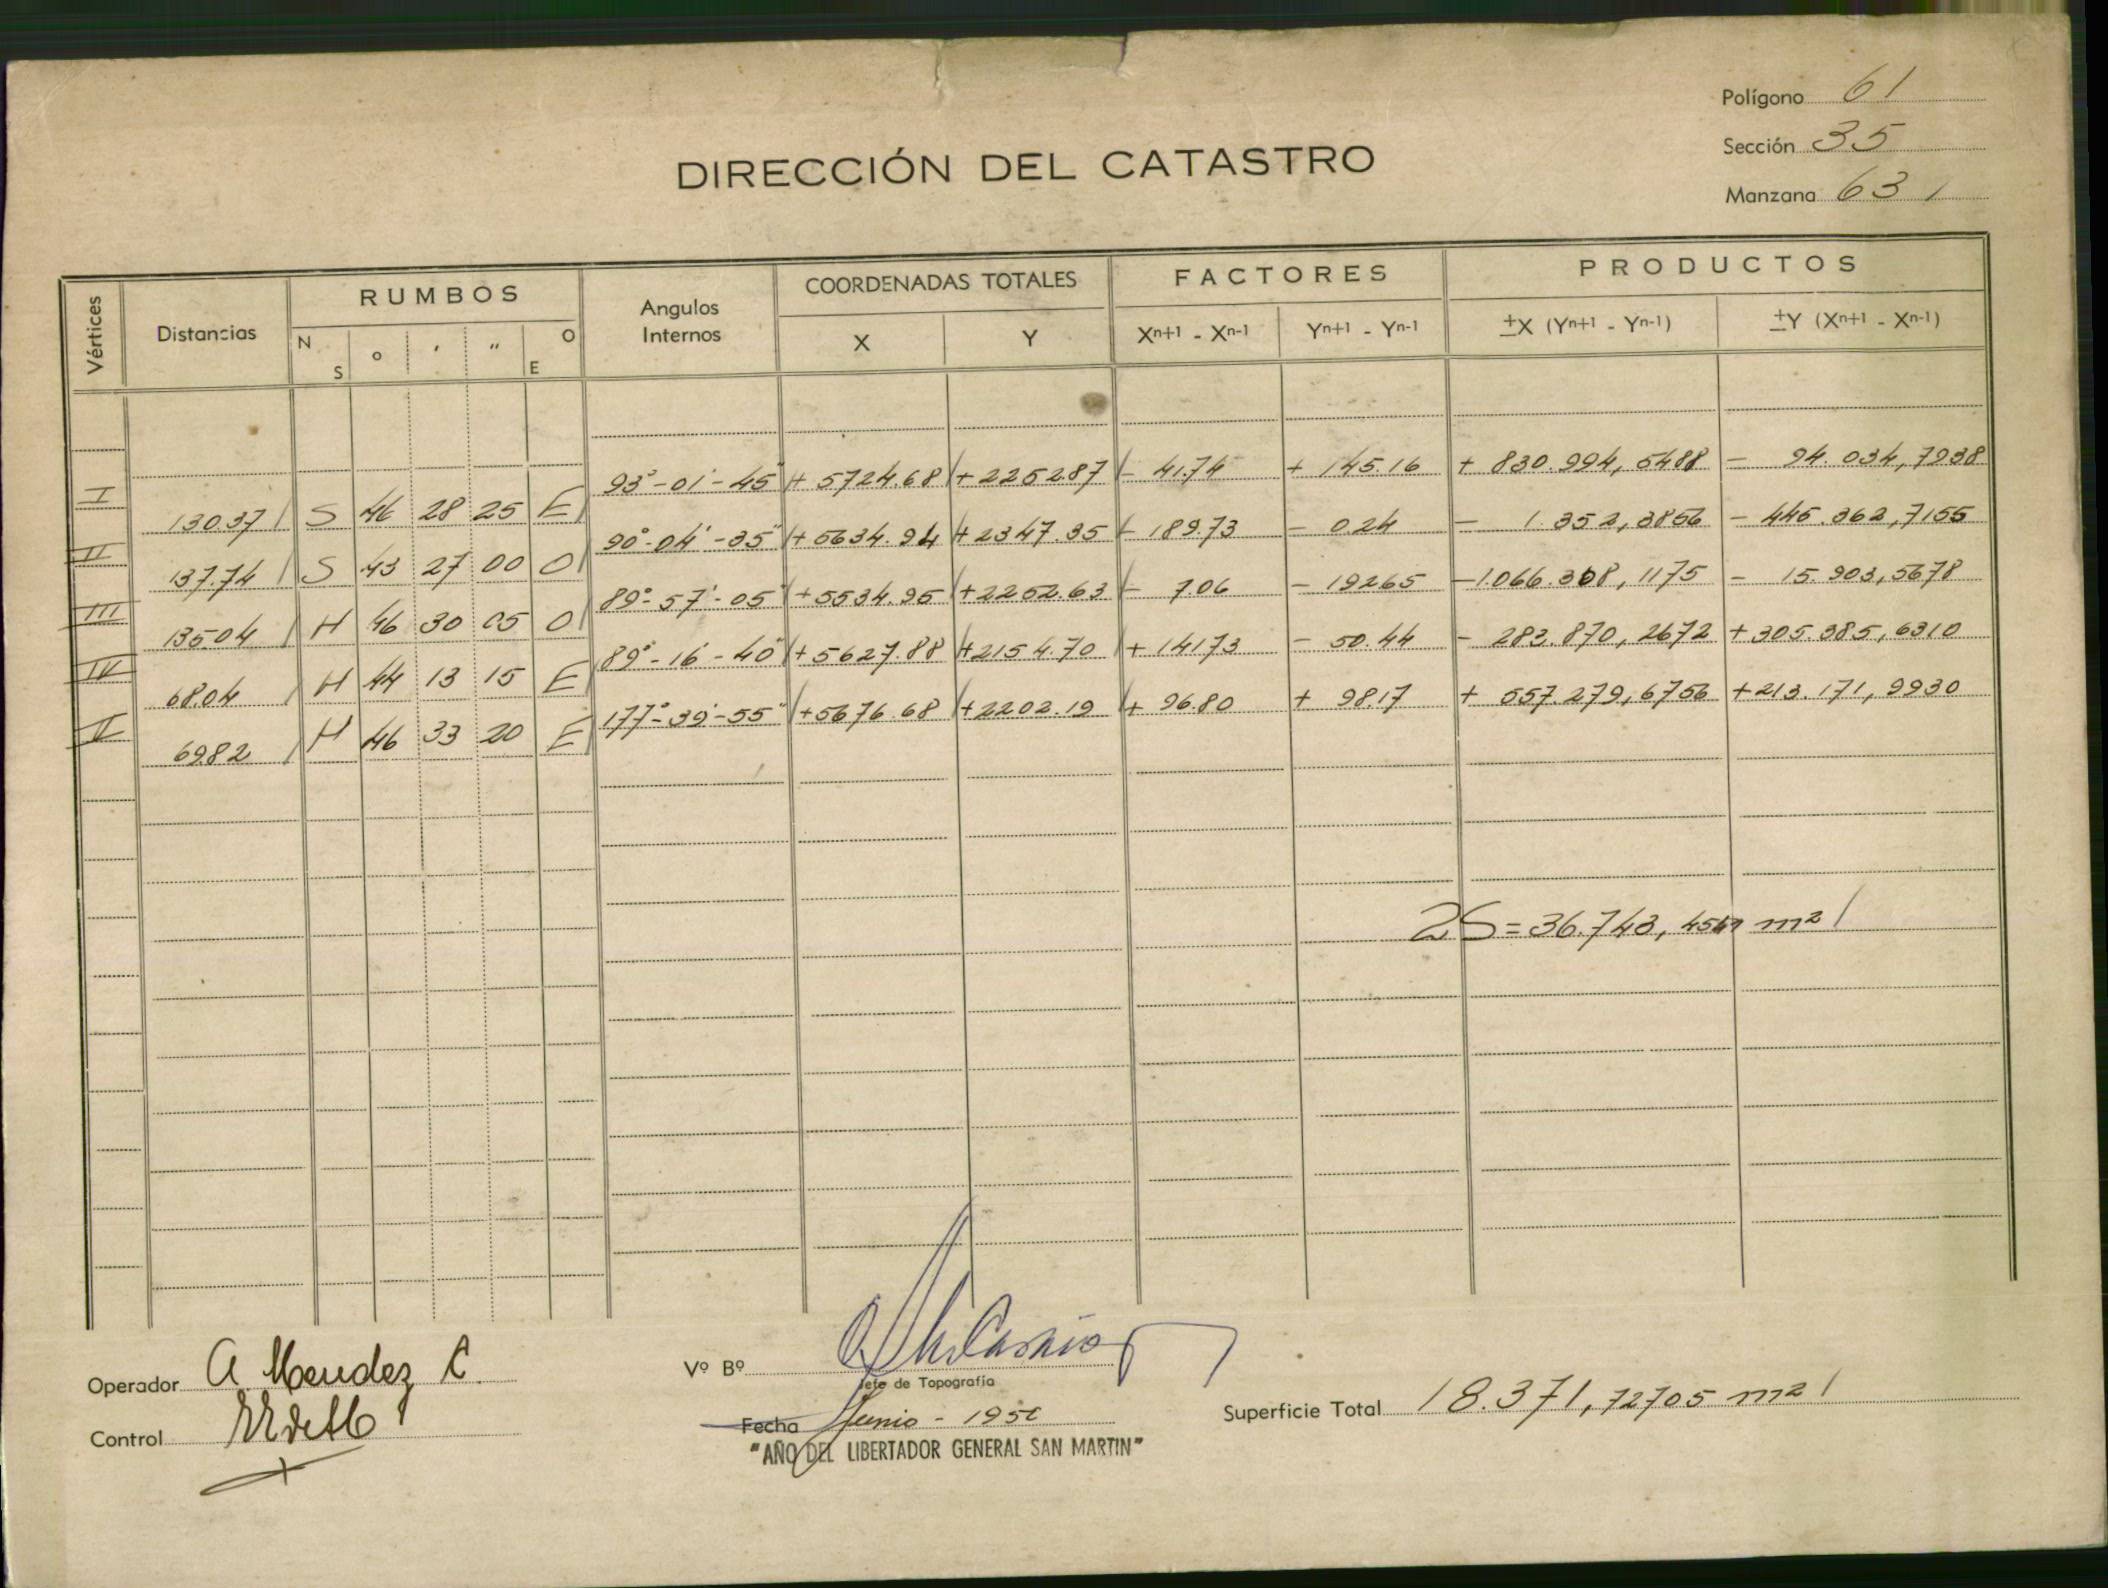 Polígono 61
Sección 35
Manzana 63
DIRECCIÓN DEL CATASTRO
Vértices Distancias RUMBOS Angulos Internos COORDENADAS TOTALES FACTORES PRODUCTOS
N S o ' " O E X Y Xn+1 - Xn-1 Yn+1 - Yn-1 ±X (Yn+1 - Yn-1) ±Y (Xn+1 - Xn-1)
I 93°-01'-45" + 5724.68 + 2252.87 - 41.74 + 145.16 + 830.994,5488 - 94.034,7938
130.37 S 46 28 25 E
II 90°-04'-35" + 5634.94 + 2347.35 - 189.73 - 0.24 - 1.352,3856 - 445.362,7155
137.74 S 43 27 00 O
III 89°-57'-05" + 5534.95 + 2252.63 - 7.06 - 192.65 - 1.066.308,1175 - 15.903,5678
135.04 N 46 30 05 O
IV 89°-16'-40" + 5627.88 + 2154.70 + 141.73 - 50.44 - 283.870,2672 + 305.385,6310
68.04 N 44 13 15 E
V 177°-39'-55" + 5676.68 + 2202.19 + 96.80 + 98.17 + 557.279,6756 + 213.171,9930
69.82 N 46 33 20 E
2S = 36.743,4541 m²
Operador A Mendez C.
Control
Vº Bº
Jefe de Topografía
Fecha Junio - 1950
"AÑO DEL LIBERTADOR GENERAL SAN MARTIN"
Superficie Total 18.371,72705 m²